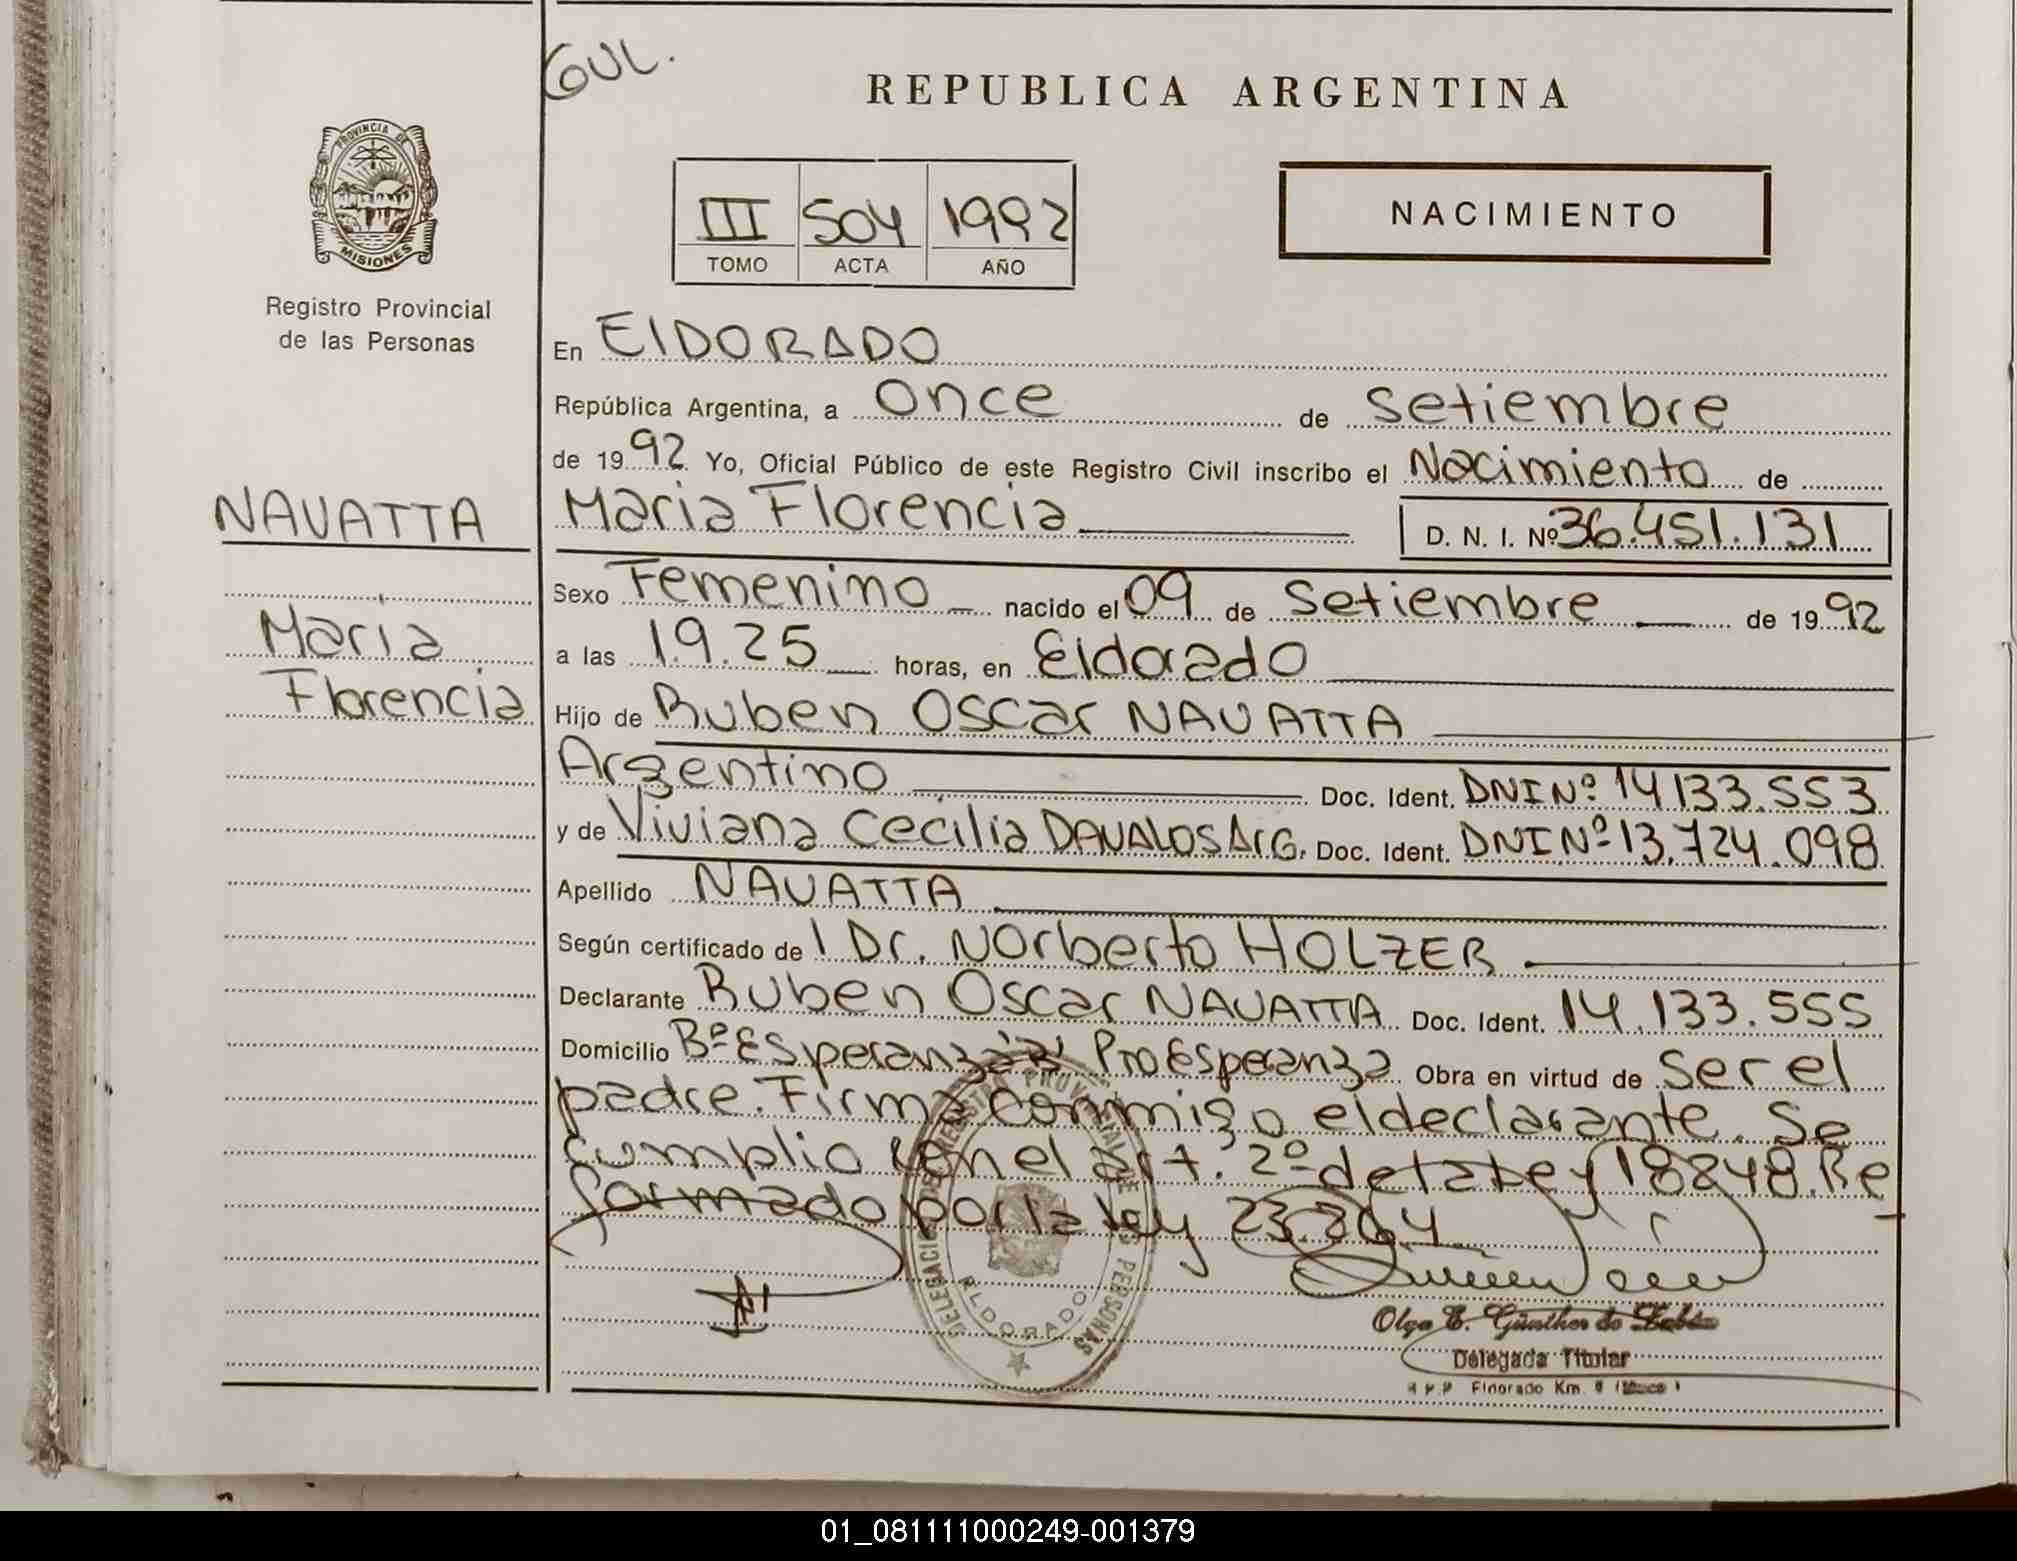 GUL.
REPUBLICA ARGENTINA
PROVINCIA DE
MISIONES
Registro Provincial
de las Personas
III 504 1992
TOMO ACTA AÑO
NACIMIENTO
En ElDORADO
República Argentina, a once de setiembre
de 1992 Yo, Oficial Público de este Registro Civil inscribo el Nacimiento de
NAVATTA
Maria Florencia D. N. I. Nº 36.451.131
Sexo Femenino nacido el 09 de setiembre de 1992
Maria
a las 19.25 horas, en Eldorado
Florencia
Hijo de Ruben Oscar NAVATTA
Argentino Doc. Ident. DNI Nº 14133.553
y de Viviana Cecilia DAVALOS Arg. Doc. Ident. DNI Nº 13.724.098
Apellido NAVATTA
Según certificado de l Dr. Norberto HOLZER
Declarante Ruben Oscar NAVATTA Doc. Ident. 14.133.555
Domicilio Bº Esperanza Pro Esperanza Obra en virtud de ser el
padre. Firma conmigo el declarante. Se
cumplio con el art. 2º de la Ley 18248. Re
formado por la ley 23.264
DELEGACION REGISTRO PROVINCIAL DE LAS PERSONAS
ELDORADO
Olga E. Günther de
Delegada Titular
Eldorado Km. 9
01_081111000249-001379